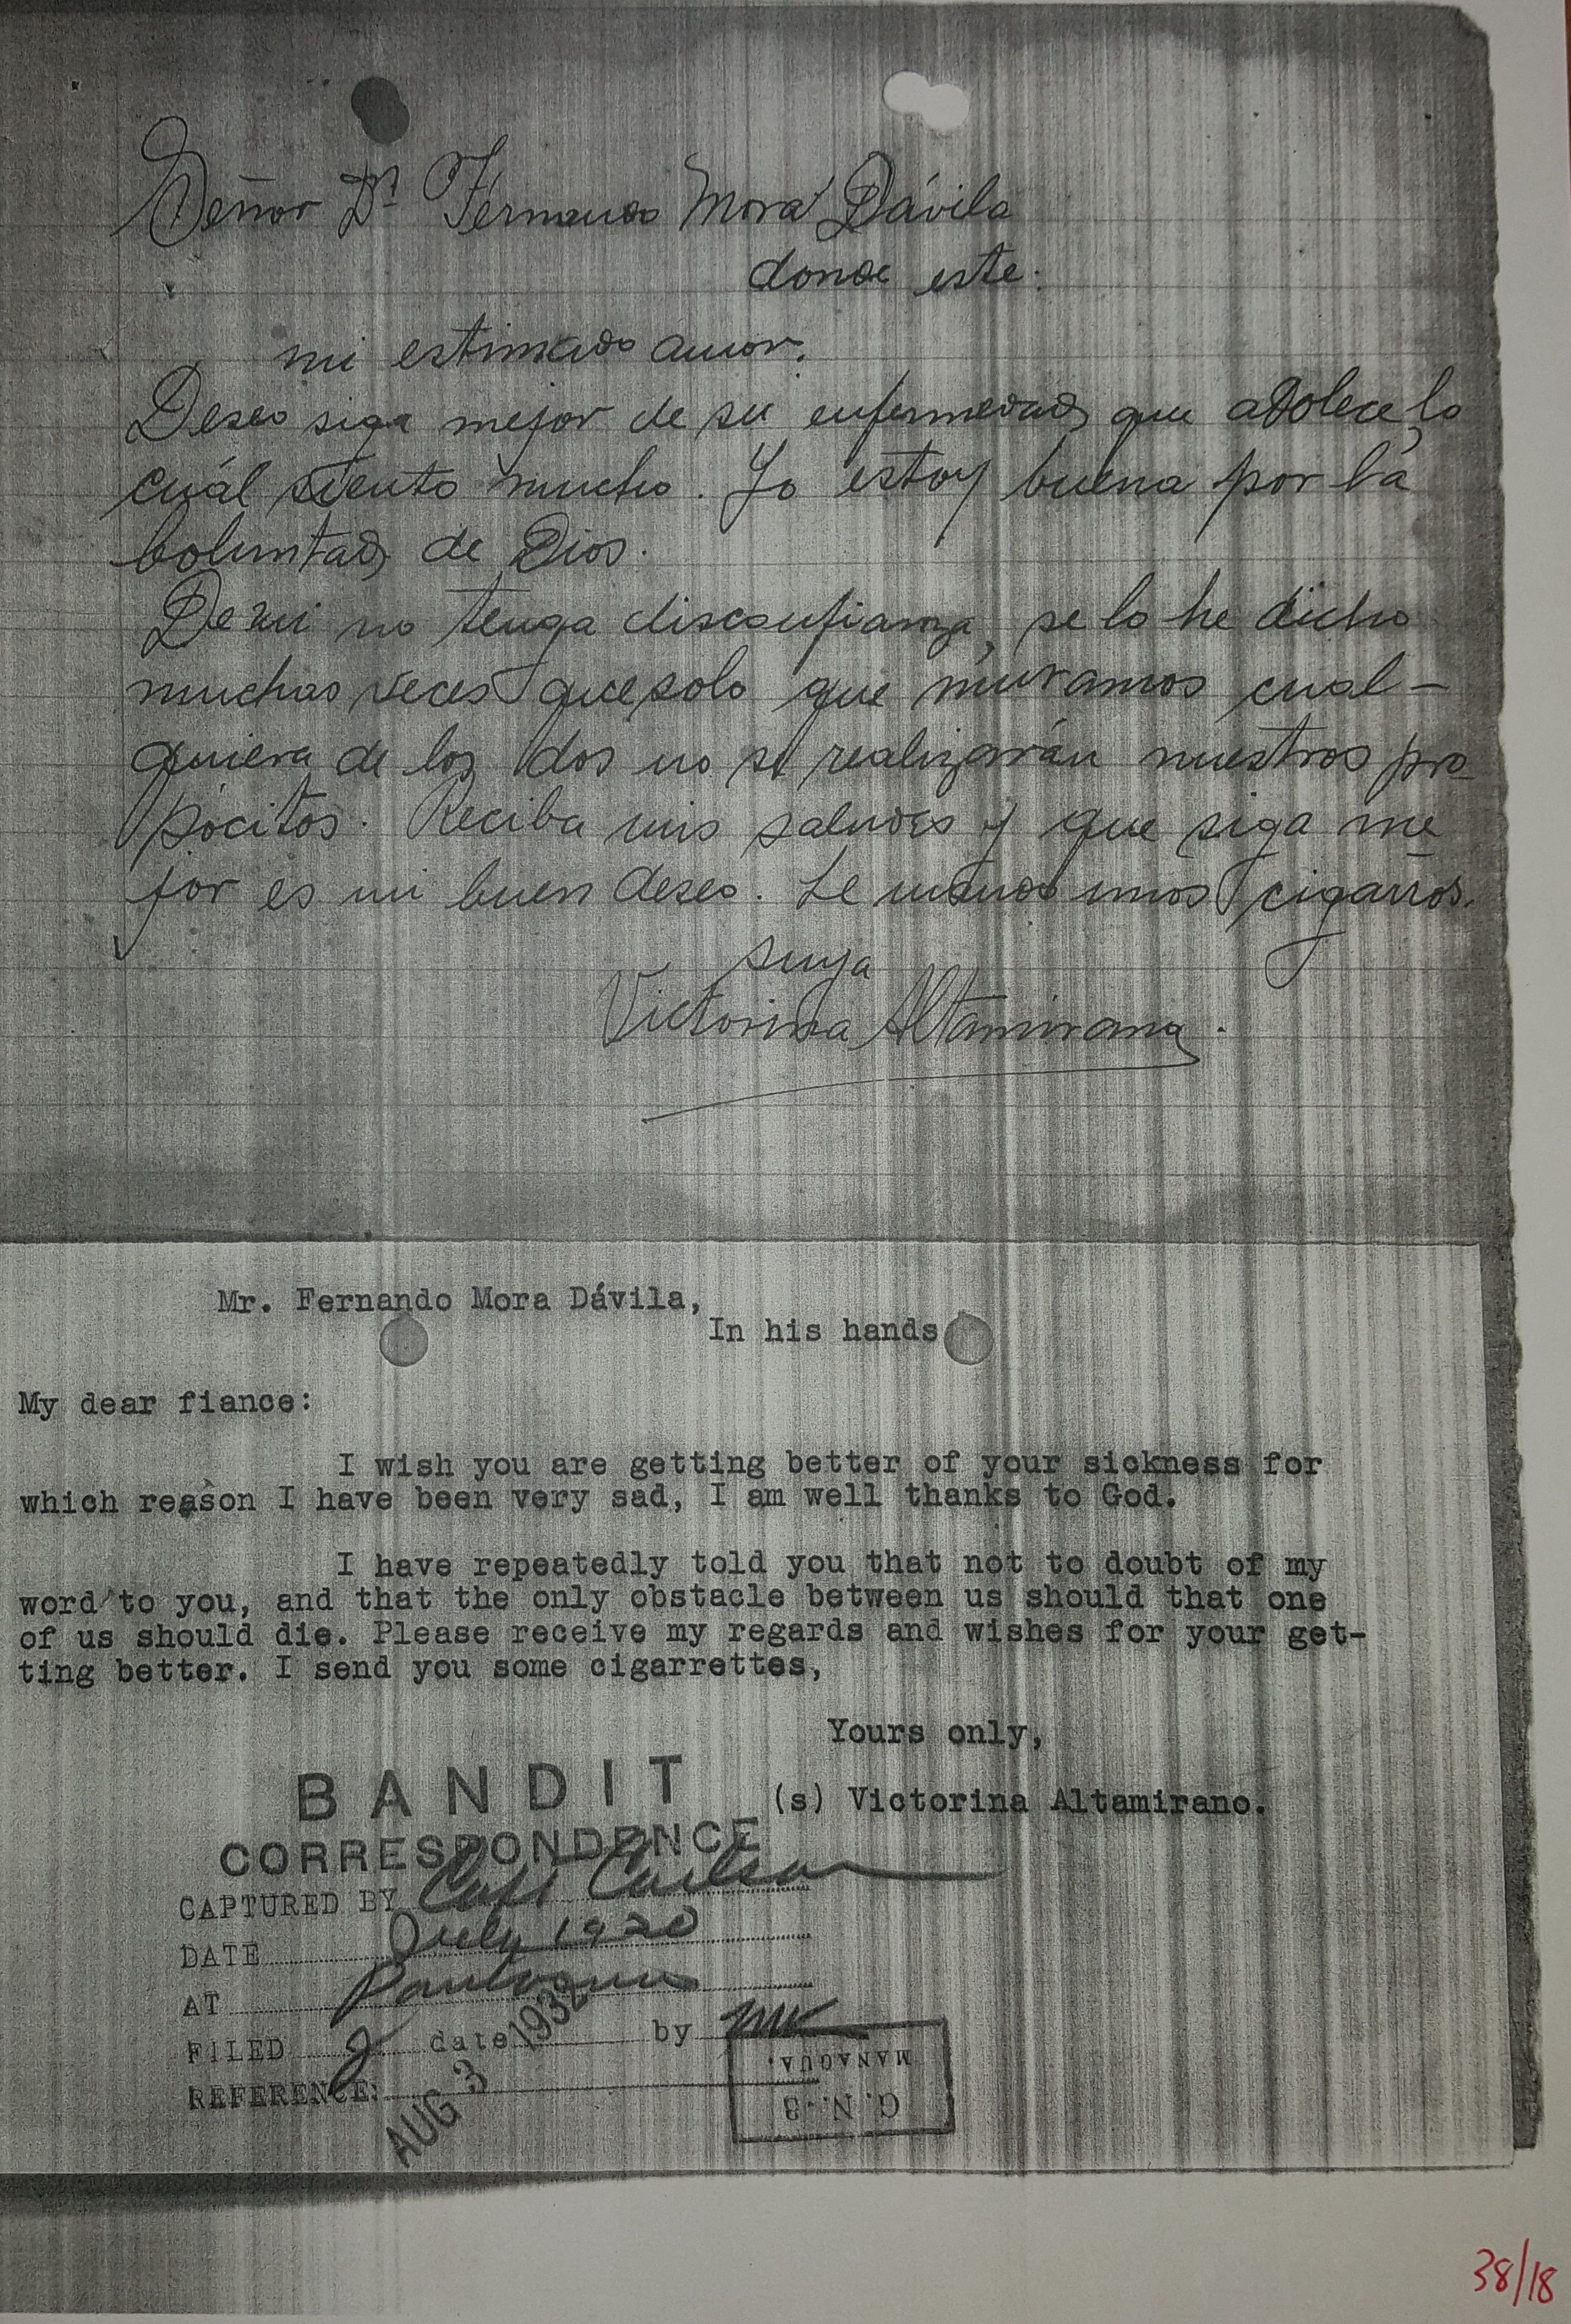 Señor Dn Fernando Mora Dávila
donde este.
mi estimado amor.
Deseo siga mejor de su enfermedad, que adolece, lo
cuál siento mucho. Yo estoy buena por la
boluntad, de Dios.
De mi no tenga disconfianza, se lo he dicho
muchas veces que solo que muramos cual-
quiera de los dos no se realizarán nuestros pro
pocitos. Reciba mis saludes y que siga me
jor es mi buen deseo. Le mando unos cigarros.
suya
Victorina Altamirano.
Mr. Fernando Mora Dávila,
In his hands
My dear fiance:
I wish you are getting better of your sickness for
which reason I have been very sad, I am well thanks to God.
I have repeatedly told you that not to doubt of my
word to you, and that the only obstacle between us should that one
of us should die. Please receive my regards and wishes for your get-
ting better. I send you some cigarrettes,
Yours only,
(s) Victorina Altamirano.
BANDIT
CORRESPONDENCE
CAPTURED BY Capt Carlson
DATE July 1930
AT
FILED 2 date by
AUG 3 1932
REFERENCE:
G. N.-3
MANAGUA.
38/18